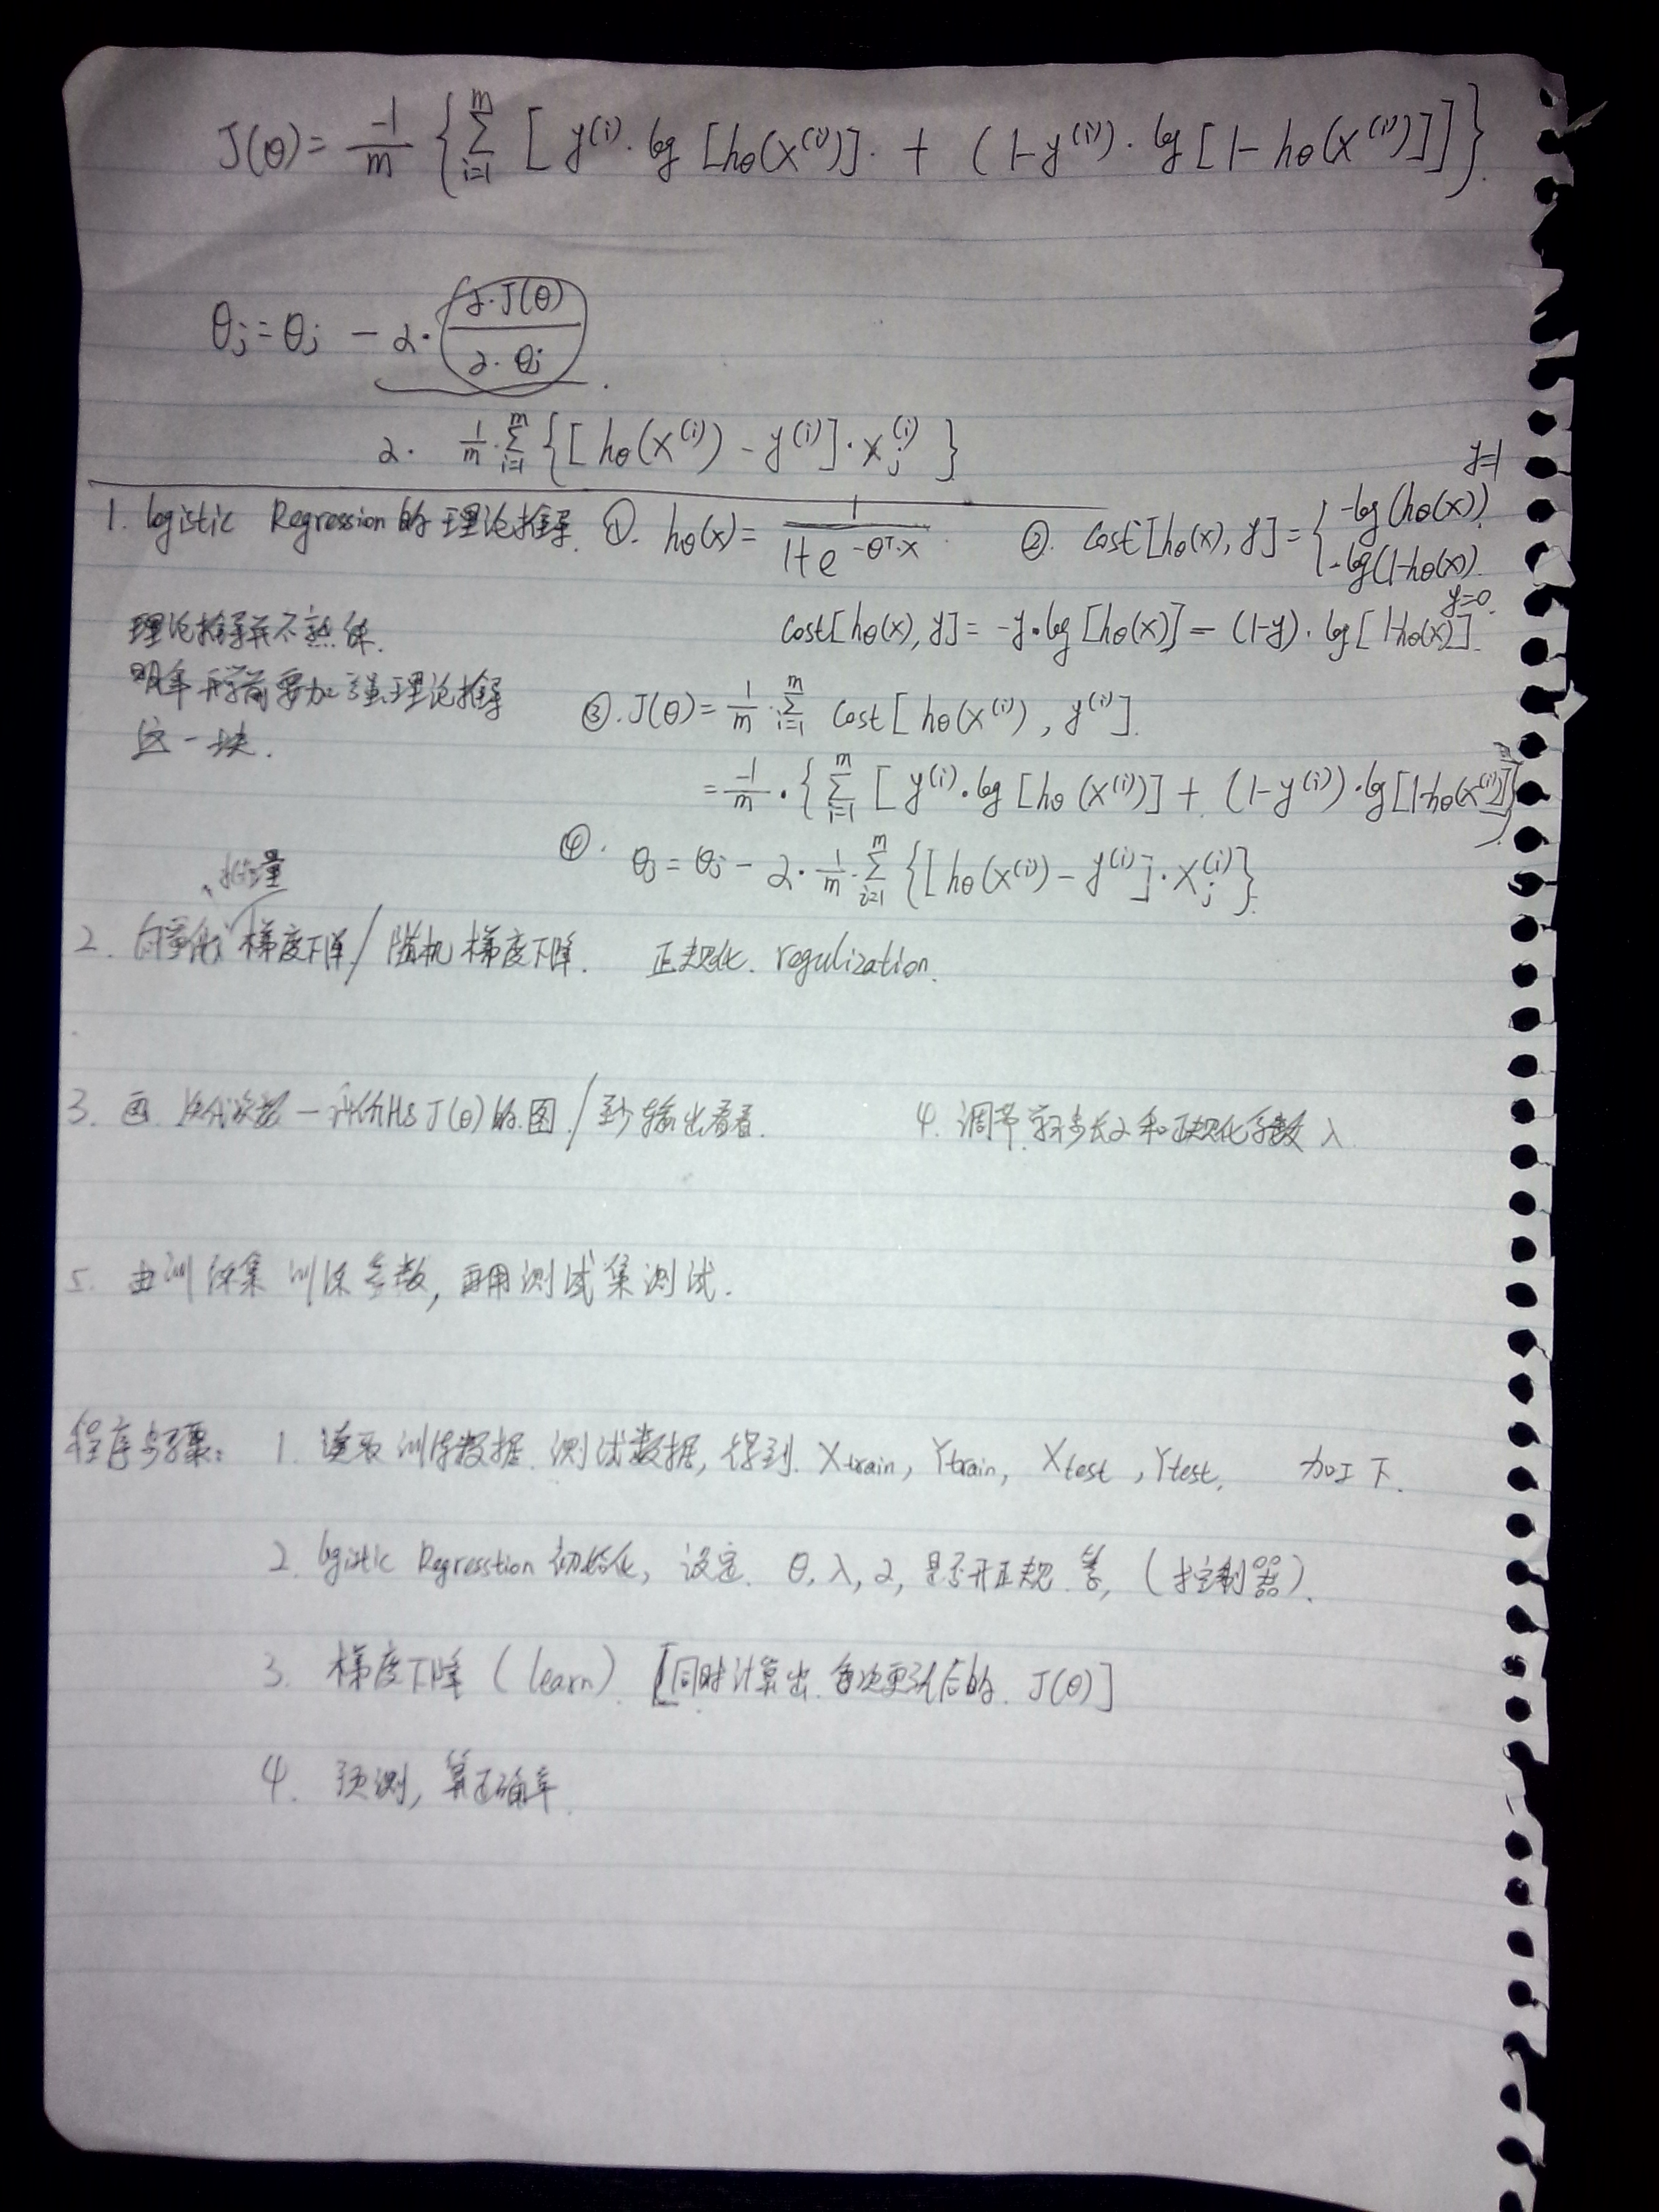 J(θ) = -1/m { Σ_{i=1}^{m} [ y^(i) · log [hθ(x^(i))] · + (1-y^(i)) · log [1-hθ(x^(i))]] }.
θj = θj - α · ∂·J(θ) / ∂·θj .
α · 1/m · Σ_{i=1}^{m} { [ hθ(x^(i)) - y^(i) ] · xj^(i) }
1. logistic Regression的理论推导. ①. hθ(x) = 1 / 1+e^{-θ^T·x} ②. Cost[hθ(x), y] = { -log(hθ(x)) y=1
-log(1-hθ(x)) y=0.
理论推导并不熟练. cost[hθ(x), y] = -y·log[hθ(x)] - (1-y)·log[1-hθ(x)].
要加强理论推导
这一块.
③. J(θ) = 1/m · Σ_{i=1}^{m} Cost[hθ(x^(i)), y^(i)].
= -1/m · { Σ_{i=1}^{m} [ y^(i) · log [hθ(x^(i))] + (1-y^(i)) · log[1-hθ(x^(i))]] }
④. θj = θj - α · 1/m · Σ_{i=1}^{m} {[hθ(x^(i)) - y^(i)] · xj^(i)}.
批量
2. 向量化 梯度下降 / 随机梯度下降. 正规化. regulization.
3. 画 迭代次数 — J(θ)的图 / 至少输出看看. 4. 调节 步长α和正规化系数λ
5. 由训练集训练参数, 再用测试集测试.
程序步骤: 1. 读取训练数据. 测试数据, 得到. Xtrain, Ytrain, Xtest, Ytest. 加工下.
2. logistic Regresstion 初始化, 设定. θ, λ, α, 是否开正规 等, (控制器).
3. 梯度下降 (learn). [同时计算出 每次更新后的 J(θ)]
4. 预测, 算正确率.